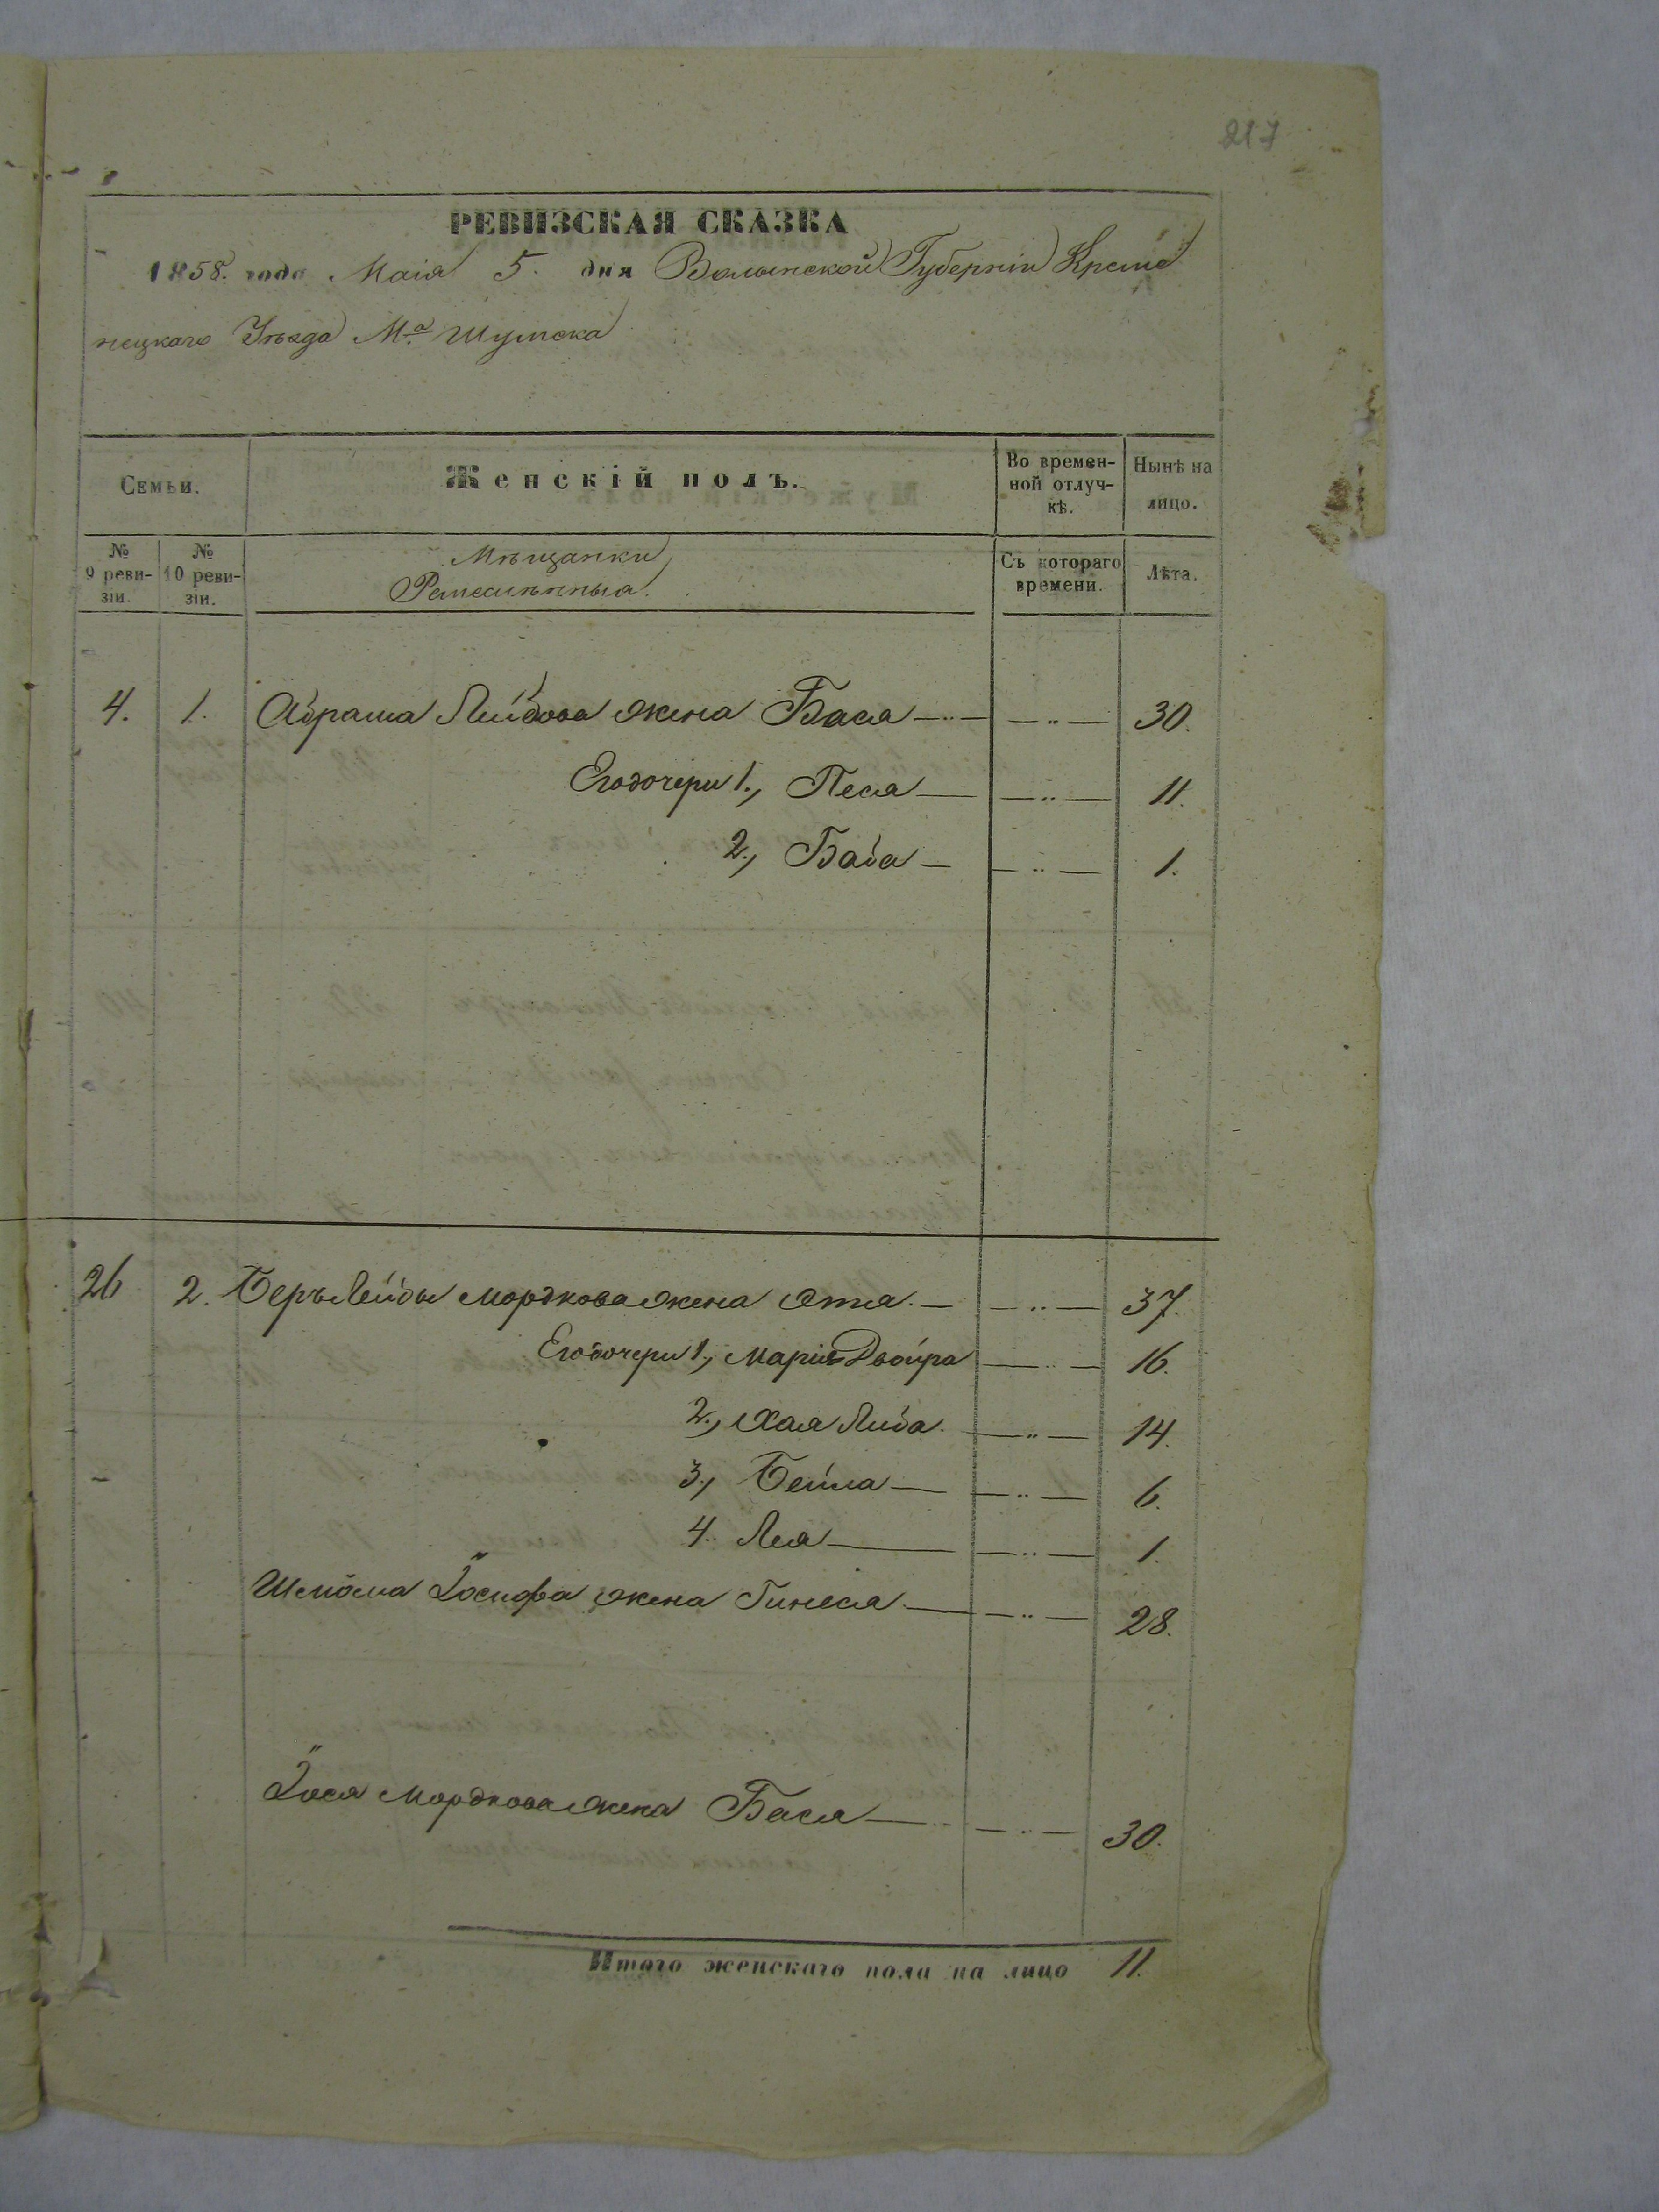 217
РЕВИЗСКАЯ СКАЗКА
1858. года Маія 5. дня Волынской Губерніи Креме
нецкаго Уѣзда М.а Шумска
Семьи.
Женскій полъ.
Во времен-
ной отлуч-
кѣ.
Нынѣ на
лицо.
№
9 реви-
зіи.
№
10 реви-
зіи.
Мѣщанки
Ремеслѣнныя.
Съ котораго
времени.
Лѣта.
4. 1. Абрама Лейбова жена Бася — „ — 30.
Его дочери 1., Песя — „ — 11.
2., Баба — „ — 1.
26 2. Беръ Лейбы Мордкова жена Этя — „ — 37.
Его дочери 1., Марія Двойра — „ — 16.
2., Хая Либа — „ — 14.
3., Бейла — „ — 6.
4. Лея — „ — 1.
Шлйома Іосифа жена Гинеся — „ — 28.
Іося Мордкова жена Бася — „ — 30.
Итого женскаго пола на лицо 11.